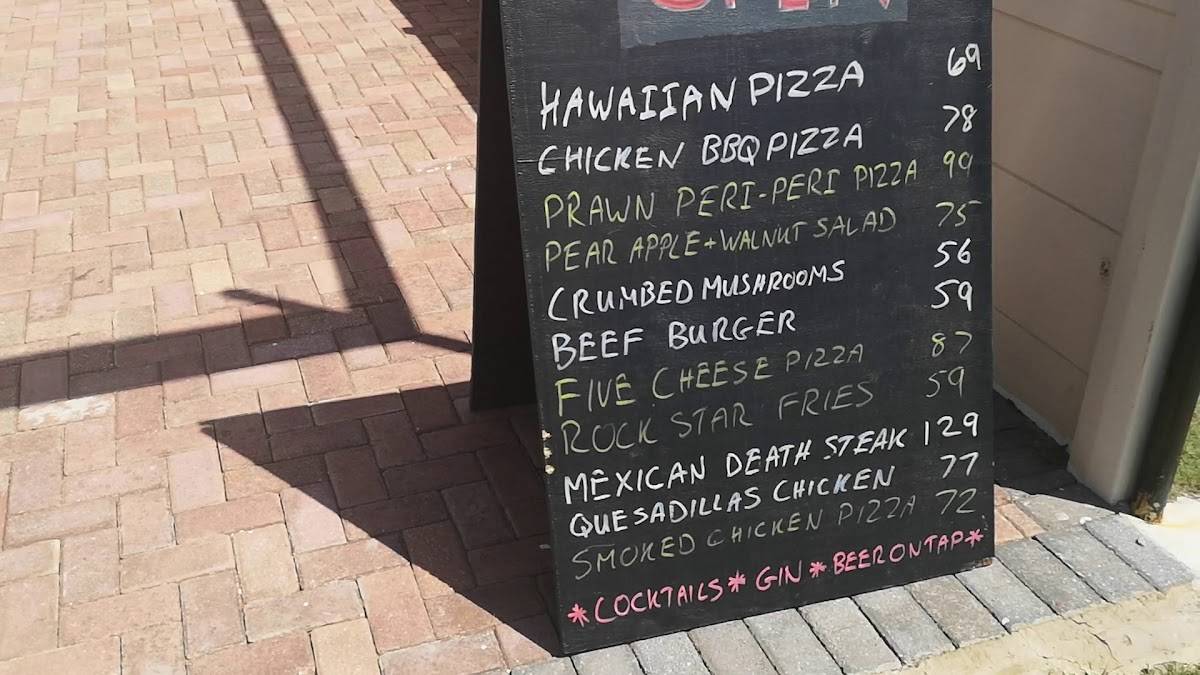 OPEN
HAWAIIAN PIZZA 69
CHICKEN BBQ PIZZA 78
PRAWN PERI-PERI PIZZA 99
PEAR APPLE + WALNUT SALAD 75
CRUMBED MUSHROOMS 56
BEEF BURGER 59
FIVE CHEESE PIZZA 87
ROCK STAR FRIES 59
MEXICAN DEATH STEAK 129
QUESADILLAS CHICKEN 77
SMOKED CHICKEN PIZZA 72
*COCKTAILS* GIN * BEER ON TAP*